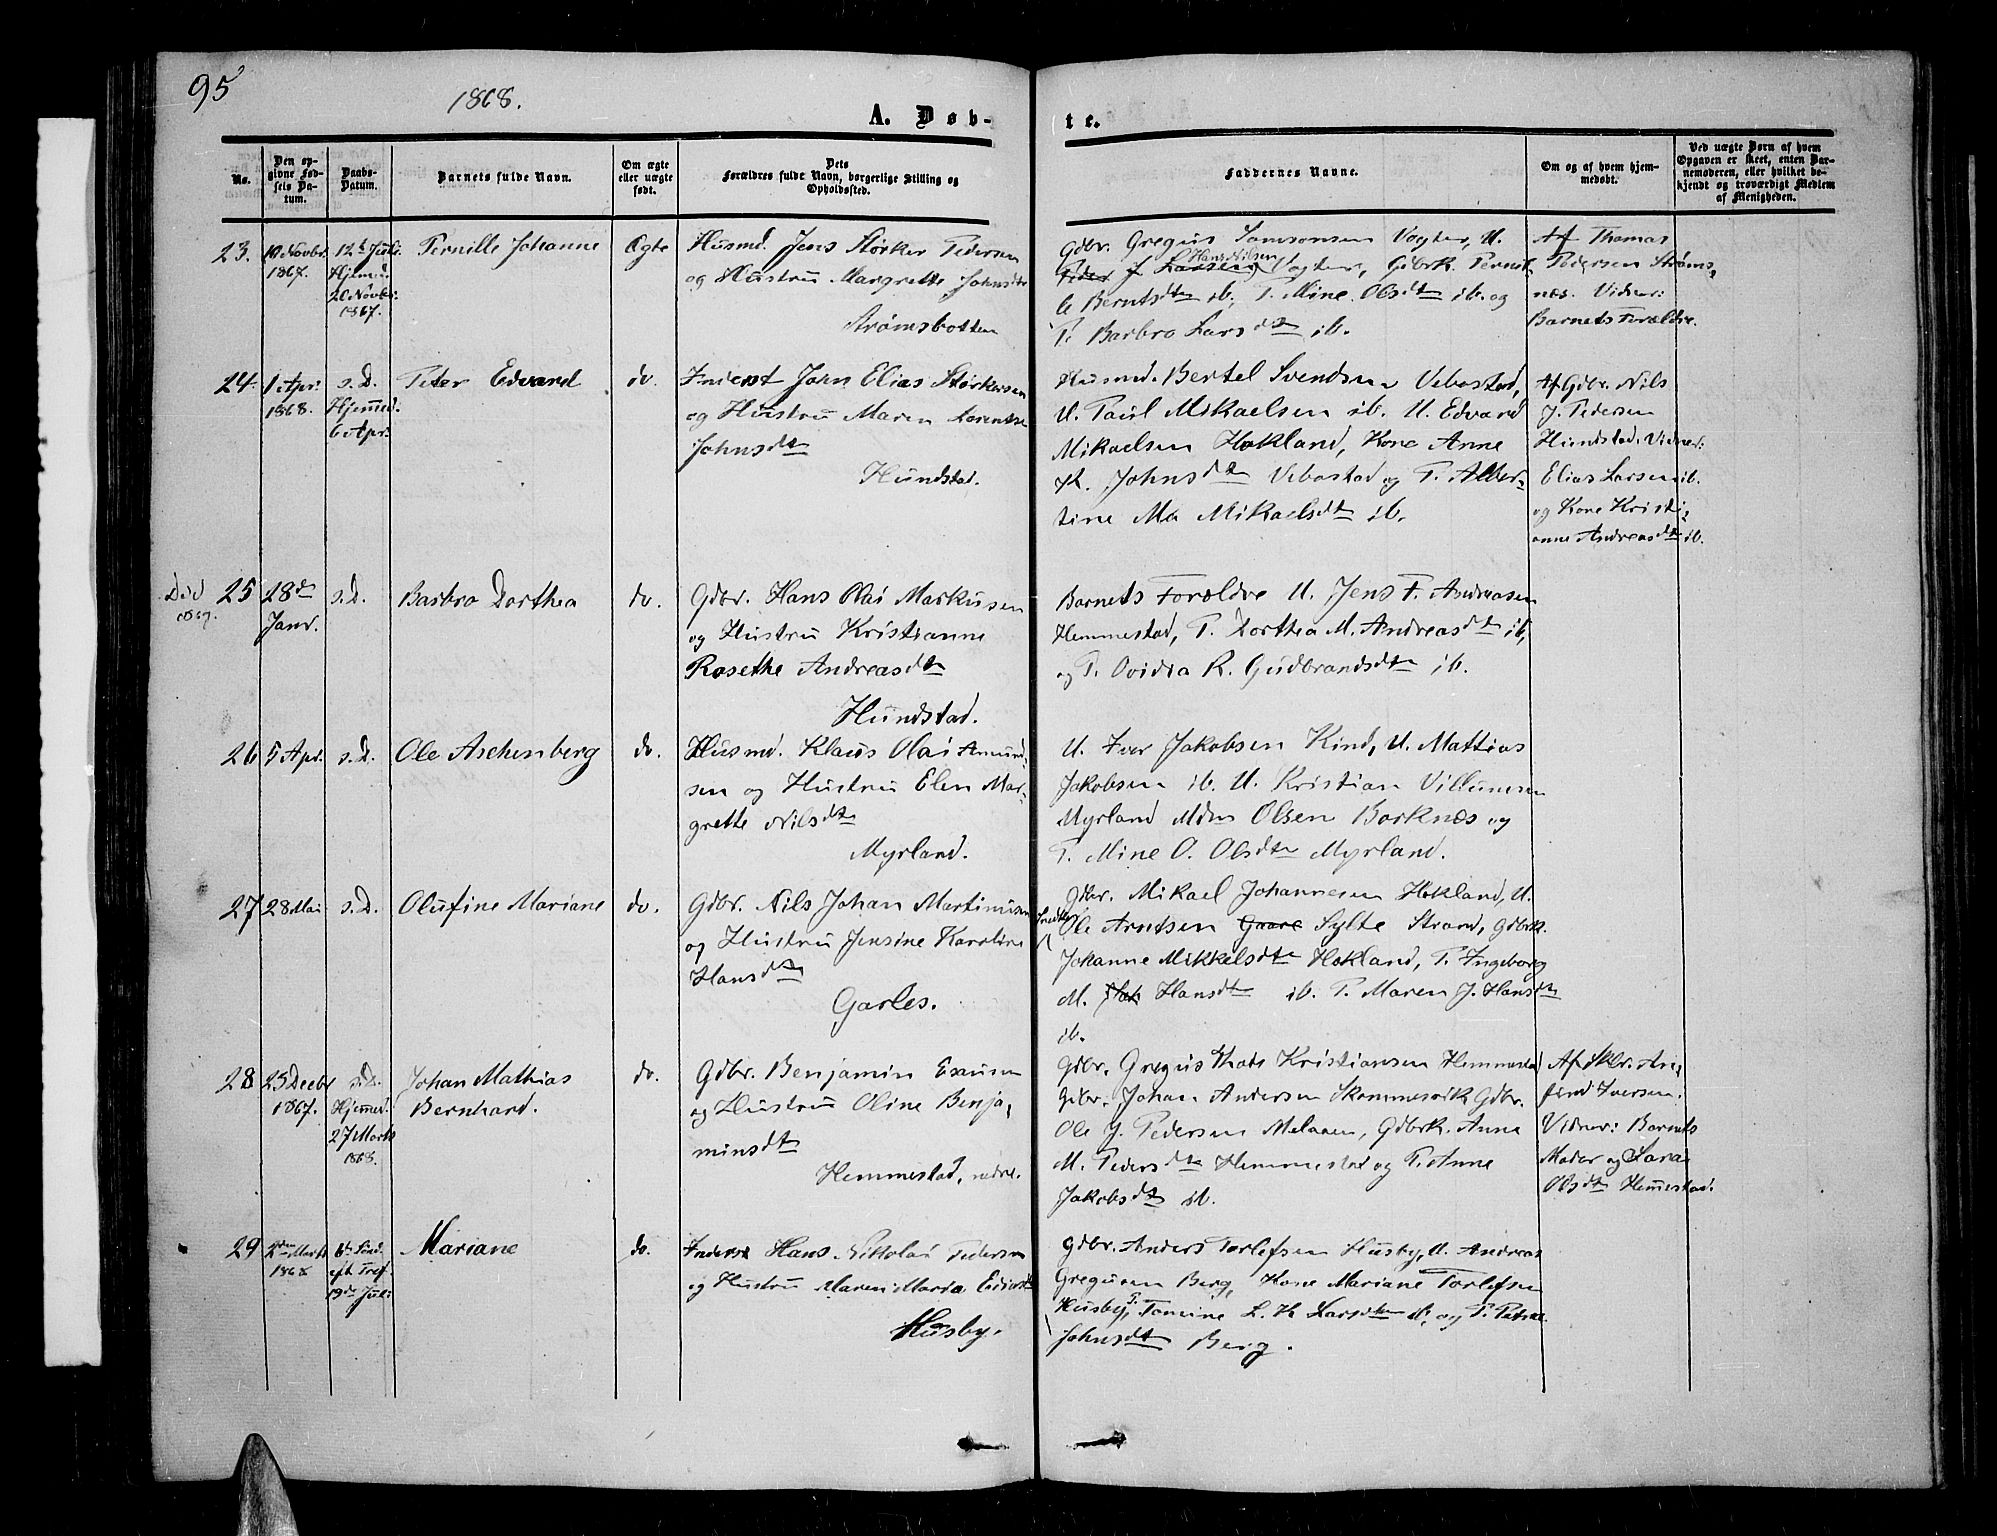 95
1868.
A. Døb-
te.
No.
Den op-
givne Fød-
sels Da-
tum.
Daabs-
Datum.
Barnets fulde Navn.
Om ægte
eller uægte
født.
Dets
Forældres fulde Navn, borgerlige Stilling og
Opholdssted.
Faddernes Navne.
Om og af hvem hjem-
medøbt.
Ved uægte Børn af hvem
Opgaven er skeet, enten Bar-
nemoderen, eller hvilket be-
kjendt og troværdigt Medlem
af Menigheden.
23.
10 Novbr.
1867.
12te Juli.
Hjemd.
20 Novbr.
1867.
Pernille Johanne
Ægte
Husmd. Jens Størker Pedersen
og Hustru Margrette Johnsdtr
Strømsbotten
Gdbr. Gregus Samsonsen Vogter, U.
Hans Nilsen
Peder J. Larsen Vogter, Gdbrk. Pernil-
le Berntsdtr ib, P. Mine Olsdtr ib. og
P. Barbro Larsdtr ib.
Af Thomas
Pedersen Strøms-
næs. Vidner:
Barnets Forældre.
24.
1 Apr:
1868.
s.D.
Hjemmed.
6 Apr:
Peter Edvard
do.
Inderst John Elias Størkersen
og Hustru Maren Lorentse
Johnsdtr
Hundstad.
Husmd. Bertel Svendsen Vebostad,
U. Paul Mikaelsen ib. U. Edvard
Mikaelsen Hokland, Kone Anne
K. Johnsdtr Vebostad og P. Alber-
tine Ma Mikaelsdtr ib.
Af Gdbr. Nils
J. Pedersen
Hundstad. Vidner:
Elias Larsen ib.
og Kone Kristi-
anne Andreasdtr ib.
Død
1869.
25
28de
Janr.
s.D.
Barbro Dorthea
do.
Gdbr. Hans Olai Markusen
og Hustru Kristianne
Rosethe Andreasdtr
Hundstad.
Barnets Forældre U. Jens F. Andreasen
Hemmestad, P. Dorthea M. Andreasdtr ib,
og P. Ovidia R. Gudbrandsdtr ib.
26
5 Apr.
s.D.
Ole Aschenberg
do.
Husmd. Klaus Olai Amund-
sen og Hustru Elen Mar-
grette Nilsdtr
Myrland.
U. Iver Jakobsen Kind, U. Mattias
Jakobsen ib. U. Kristian Villumsen
Myrland Mons Olsen Borknæs og
P. Mine O. Olsdtr Myrland.
27
28 Mai
s.D.
Olufine Mariane
do.
Gdbr. Nils Johan Martinusen
og Hustru Jensine Karoline
Hansdtr
Garles.
Gdbr. Mikael Johannesen Hokland, U.
Ole Arntsen Gaare Sylte Strand, Gdbrk.
Johanne Mikkelsdtr Hokland, P. Ingeborg
M. Hansdtr ib. P. Maren J. Hansdtr
ib.
28
25 Decbr
1867.
s.D.
Hjemmed.
27 Marts
1868.
Johan Mathias
Bernhard.
do.
Gdbr. Benjamin Esaiusen
og Hustru Oline Benja-
minsdtr
Hemmestad, nedre.
Gdbr. Gregus Thode Kristiansen Hemmestad
Gdbr. Johan Andersen Skommesvik Gdbr.
Ole J. Pedersen Melaaen, Gdbrk. Anna
M. Pedersdtr Hemmestad og P. Anne
Jakobsdtr ib.
Af Sklr. Arn-
find Iversen.
Vidner: Barnets
Moder og Lava
Olsdtr Hemmestad.
29
2den Marts
1868
6te Sønd.
eft Tref.
19de Juli
Mariane
do.
Inderst Hans Nikolai Pedersen
og Hustru Maren Maria
Husby.
Gdbr. Anders Torlefsen Husby, U. Andreas
Gregusen Berg, Kone Mariane Torlefsen
Husby, P. Tomine L. K. Larsdtr ib. og P. Petrine
Johnsdtr Berg.